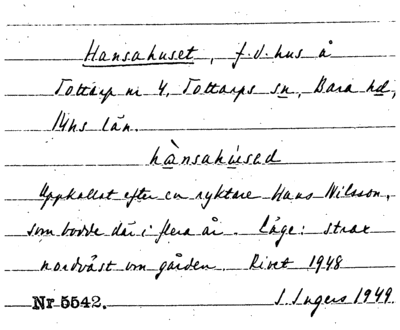 Hansahuset, f.d. hus å
Tottarp nr 4, Tottarps sn, Bara hd,
Mhs län.
hànsahúsəd
Uppkallat efter en ryktare Hans Nilsson,
som bodde där i flera år. Läge: strax
nordväst om gården. Rivet 1948
Nr 5542. I. Ingers 1949.